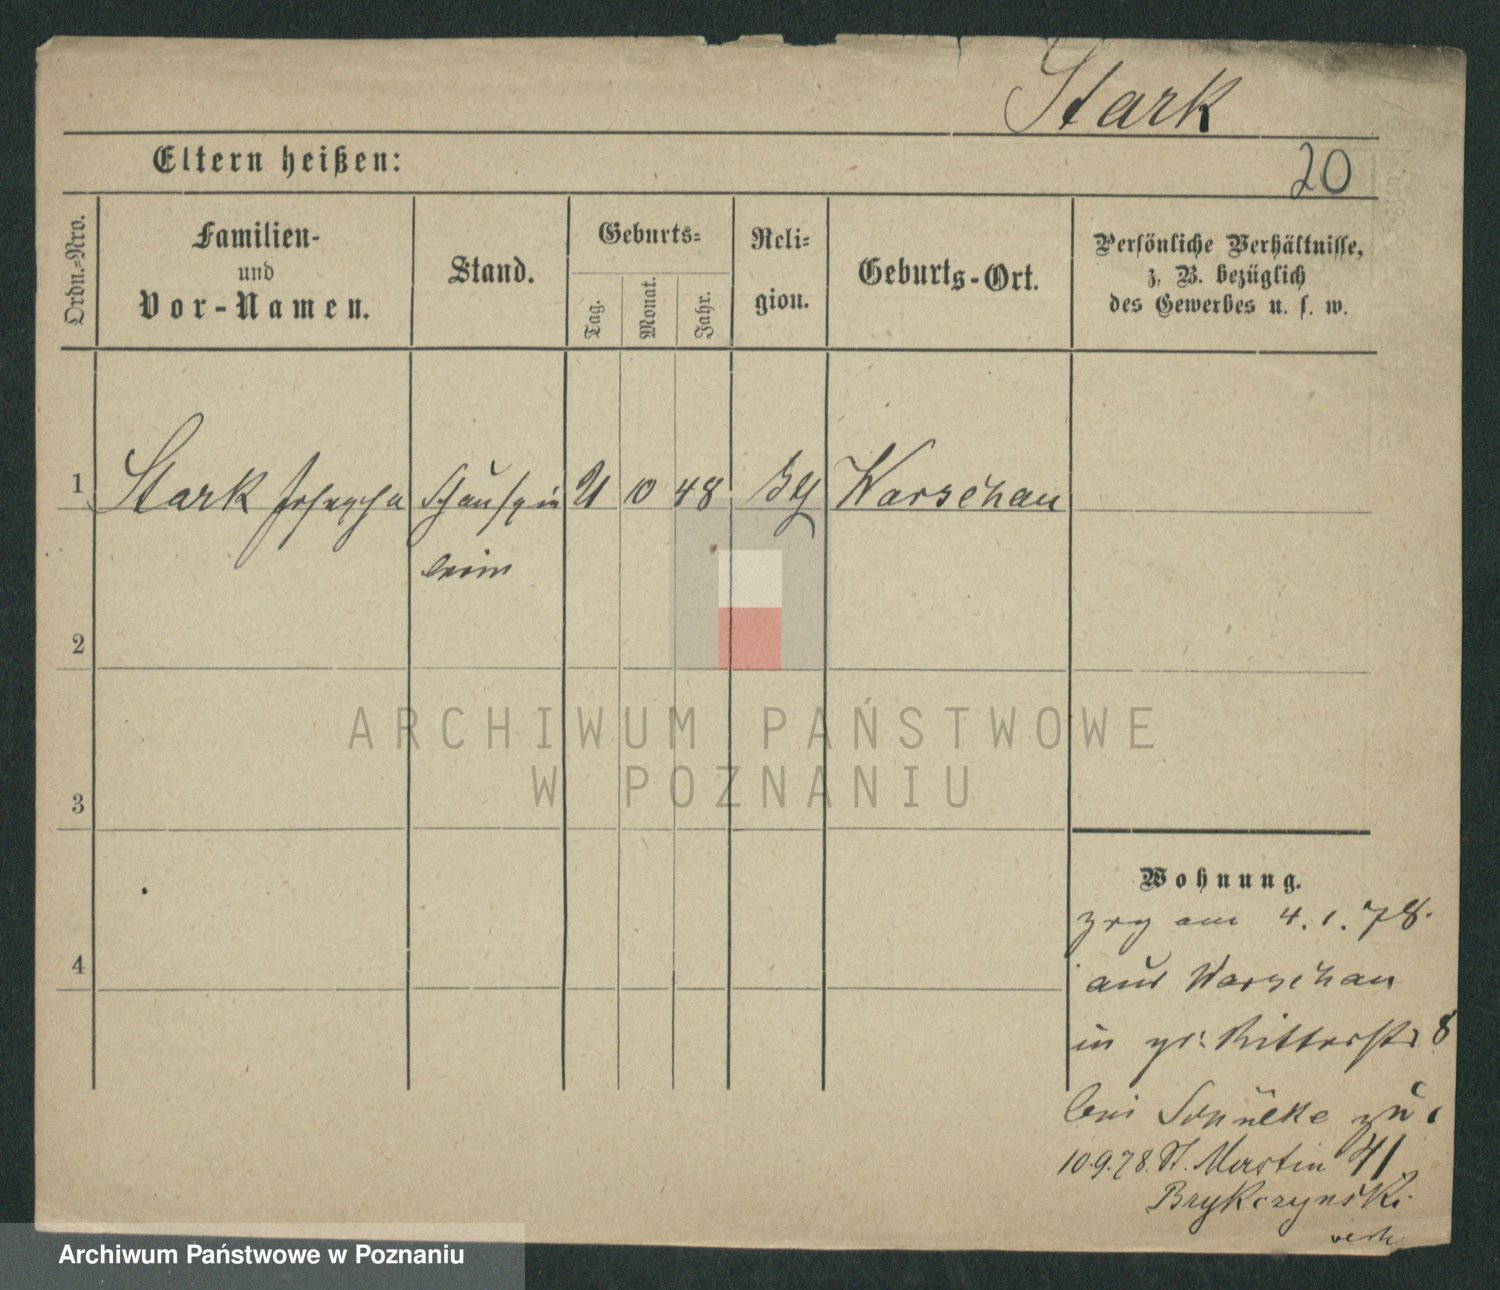 Stark
Eltern heißen:
20
Ordn.=Nro.
Familien-
und
Vor-Namen.
Stand.
Geburts=
Tag.
Monat.
Jahr.
Reli=
gion.
Geburts-Ort.
Persönliche Verhältnisse,
z. B. bezüglich
des Gewerbes u. s. w.
1
Stark Josepha
Schauspie
lerin
21
10
48
Warschau
2
ARCHIWUM PAŃSTWOWE
W POZNANIU
3
Wohnung.
4
zrg am 4.1.78.
aus Warschau
in gr. Ritterstr 8
bei
10.9.78. St. Martin 41
Brykczynski
Archiwum Państwowe w Poznaniu